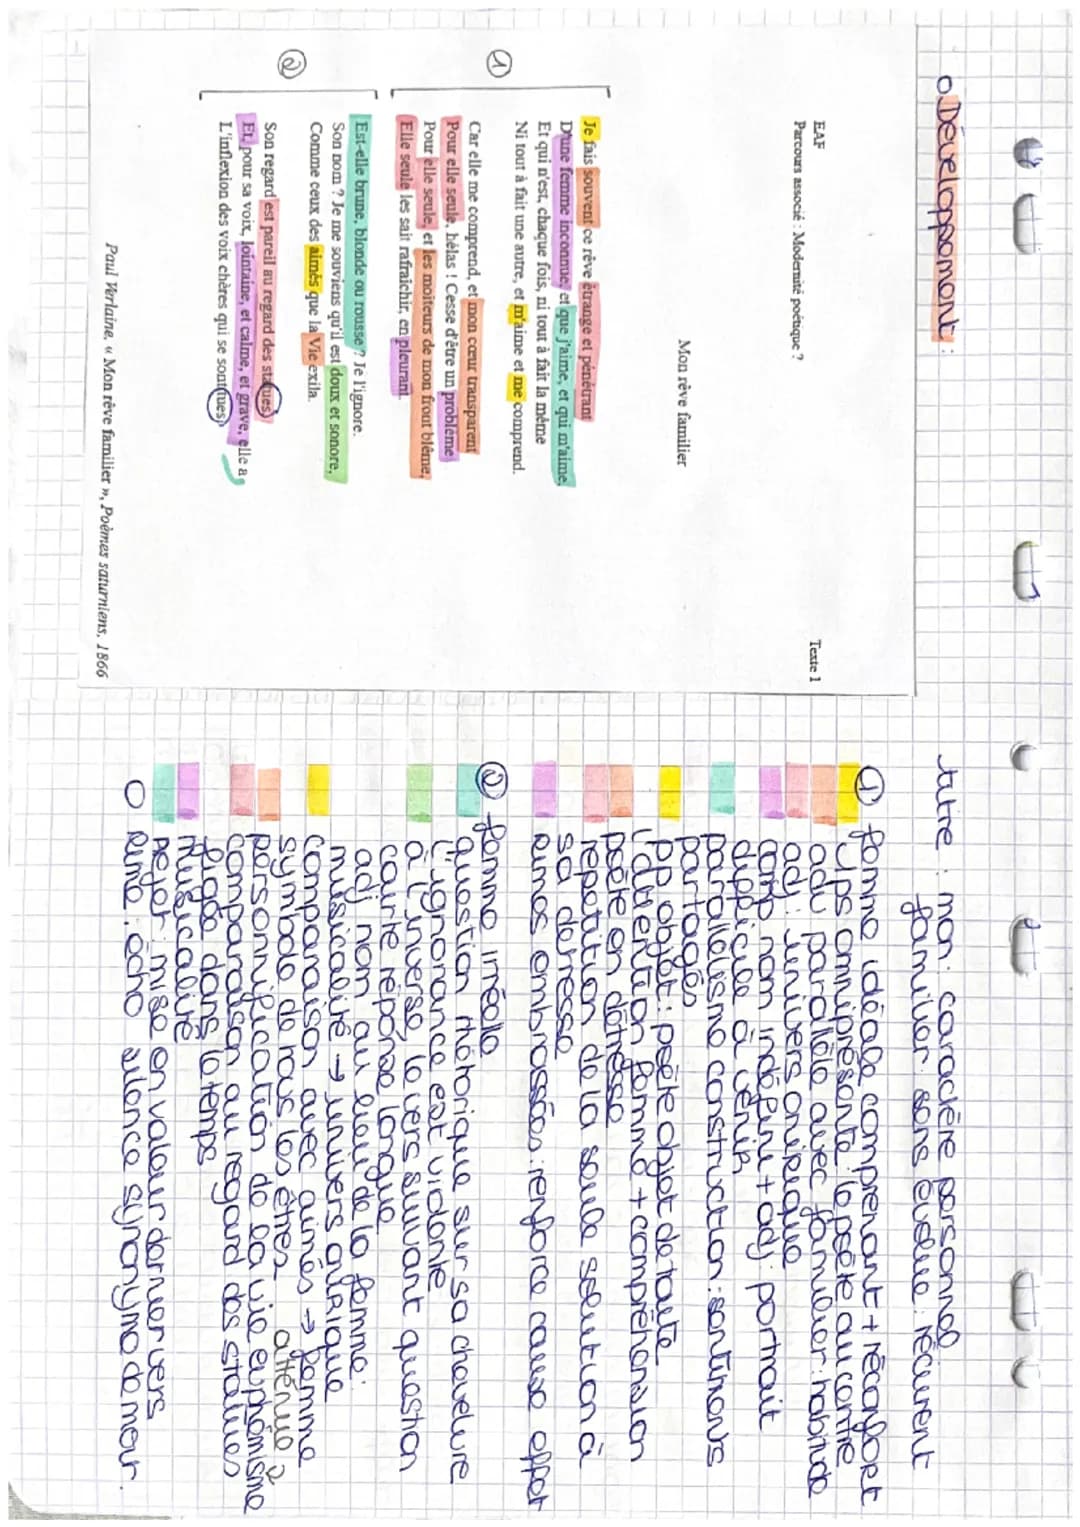 o Développement :
EAF
Texte 1
Parcours associé : Modernité poétique ?
Mon rêve familier
Je fais souvent ce rêve étrange et pénétrant
D'une femme inconnue, et que j'aime, et qui m'aime,
Et qui n'est, chaque fois, ni tout à fait la même
Ni tout à fait une autre, et m'aime et me comprend.
①
Car elle me comprend, et mon cœur transparent
Pour elle seule, hélas ! Cesse d'être un problème
Pour elle seule, et les moiteurs de mon front blême,
Elle seule les sait rafraichir, en pleurant.
Est-elle brune, blonde ou rousse ? Je l'ignore.
Son nom ? Je me souviens qu'il est doux et sonore,
Comme ceux des aimés que la Vie exila.
②
Son regard est pareil au regard des statues,
Et, pour sa voix, lointaine, et calme, et grave, elle a
L'inflexion des voix chères qui se sont tues.
Paul Verlaine, « Mon rêve familier », Poèmes saturniens, 1866
titre : mon : caractère personnel
familier : sens évolué : récurent
① femme idéale comprenant + réconfort
1ps omniprésente : le poète au centre
adv parallèle avec familier : habitude
adj : univers onirique
comp nom indéfini + adj : portrait
difficile à venir
parallélisme construction : sentiments
partagés
pp objet : poète objet de toute
l'attention femme + compréhension
poète en détresse
repetition de la seule solution à
sa détresse
rimes embrassées : renforce cause effet
② femme irréelle
question rhétorique sur sa chevelure
l'ignorance est violente
à l'inverse le vers suivant question
courte réponse longue
adj nom au lieu de la femme :
musicalité → univers onirique
comparaison avec aimés → femme
symbole de tous les êtres
personnification de la vie euphémisme
atténue
comparaison au regard des statues
figée dans le temps
musicalité
rejet : mise en valeur dernier vers
O Rime : écho silence synonyme de mour.